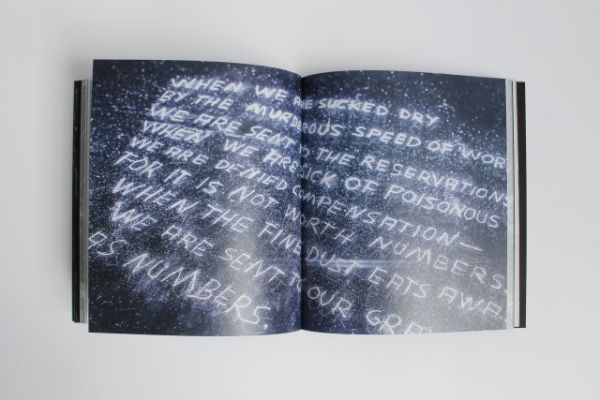 WHEN WE ARE SUCKED DRY
BY THE MURDEROUS SPEED OF WOR
WE ARE SENT TO THE RESERVATIONS
WHEN WE ARE SICK OF POISONOUS
WE ARE DENIED COMPENSATION—
FOR IT IS NOT WORTH NUMBERS.
WHEN THE FINE DUST EATS AWA
WE ARE SENT TO OUR GRA
AS NUMBERS.